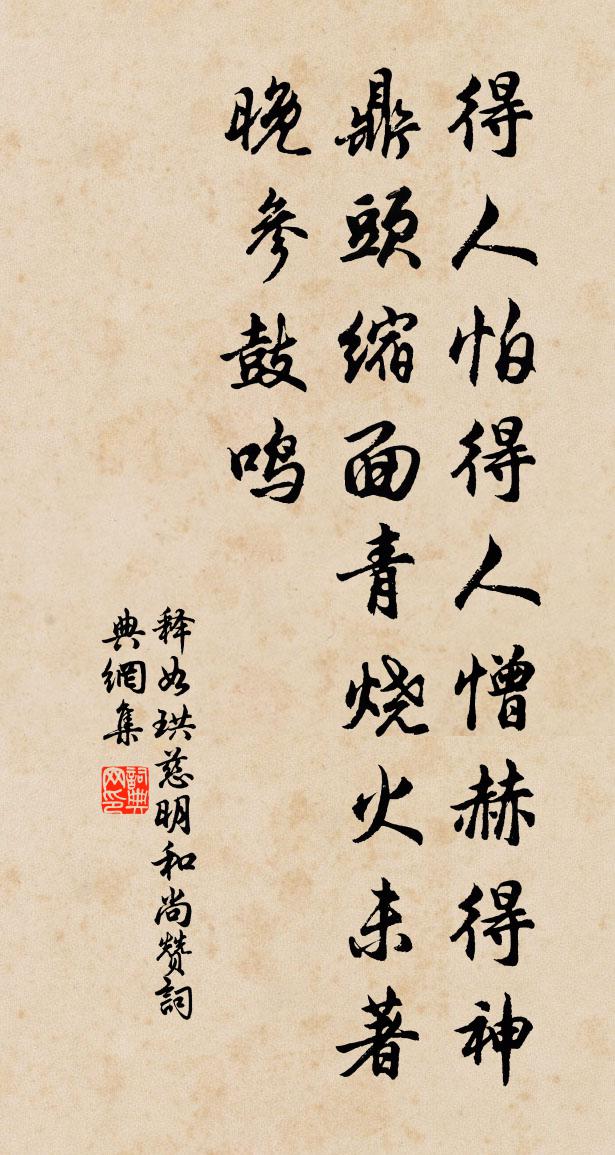 得人怕得人憎赫得神
鼎頭缩面青烧火未著
晚参鼓鸣
释如珙慈明和尚赞詞
典網集
詞典
网印